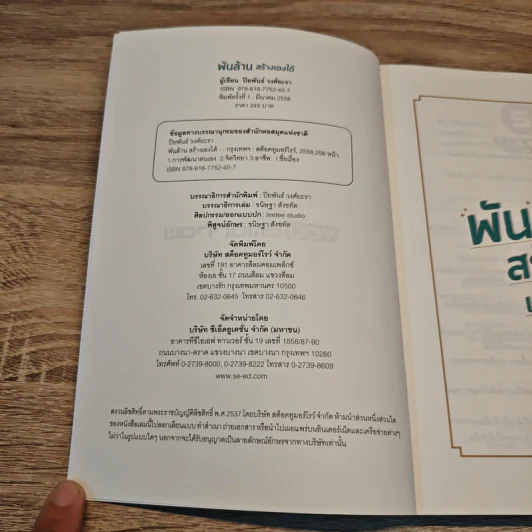 พันล้าน สร้างเองได้
ผู้เขียน ปิยพันธ์ วงศ์ยะรา
ISBN 978-616-7752-45-7
พิมพ์ครั้งที่ 1 : มีนาคม 2558
ราคา 245 บาท
ข้อมูลทางบรรณานุกรมของสำนักหอสมุดแห่งชาติ
ปิยพันธ์ วงศ์ยะรา
พันล้าน สร้างเองได้ - - กรุงเทพฯ : สต็อคทูมอร์โรว์, 2558.256 หน้า.
1.การพัฒนาตนเอง 2.จิตวิทยา 3.อาชีพ. I.ชื่อเรื่อง
ISBN 978-616-7752-45-7
บรรณาธิการสำนักพิมพ์ : ปิยพันธ์ วงศ์ยะรา
บรรณาธิการเล่ม : ชนิษฐา สังขทัด
ศิลปกรรม/ออกแบบปก : teetee studio
พิสูจน์อักษร : ชนิษฐา สังขทัด
จัดพิมพ์โดย
บริษัท สต็อคทูมอร์โรว์ จำกัด
เลขที่ 191 อาคารสีลมคอมเพล็กซ์
ห้องเอ ชั้น 17 ถนนสีลม แขวงสีลม
เขตบางรัก กรุงเทพมหานคร 10500
โทร. 02-632-0645 โทรสาร 02-632-0646
จัดจำหน่ายโดย
บริษัท ซีเอ็ดยูเคชั่น จำกัด (มหาชน)
อาคารทีซีไอเอฟ ทาวเวอร์ ชั้น 19 เลขที่ 1858/87-90
ถนนบางนา-ตราด แขวงบางนา เขตบางนา กรุงเทพฯ 10260
โทรศัพท์ 0-2739-8000, 0-2739-8222 โทรสาร 0-2739-8609
www.se-ed.com
สงวนลิขสิทธิ์ตามพระราชบัญญัติลิขสิทธิ์ พ.ศ.2537 โดยบริษัท สต็อคทูมอร์โรว์ จำกัด ห้ามนำส่วนหนึ่งส่วนใด
ของหนังสือเล่มนี้ไปลอกเลียนแบบ ทำสำเนา ถ่ายเอกสาร หรือนำไปเผยแพร่บนอินเตอร์เน็ตและเครือข่ายต่างๆ
ไม่ว่าในรูปแบบใดๆ นอกจากจะได้รับอนุญาตเป็นลายลักษณ์อักษรจากทางบริษัทเท่านั้น
พัน
ส